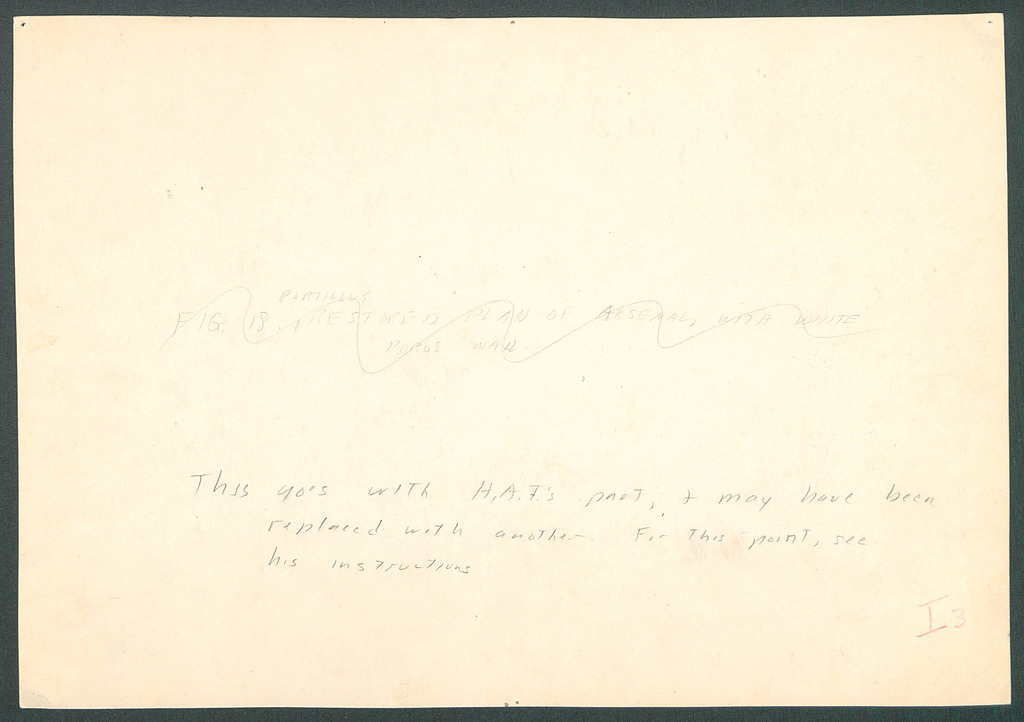 PARTIALLY
FIG. 18. RESTORED PLAN OF ARSENAL, WITH WHITE
POROS WALL.
This goes with H.A.T.'s part, & may have been
replaced with another. For this point, see
his instructions
I 3